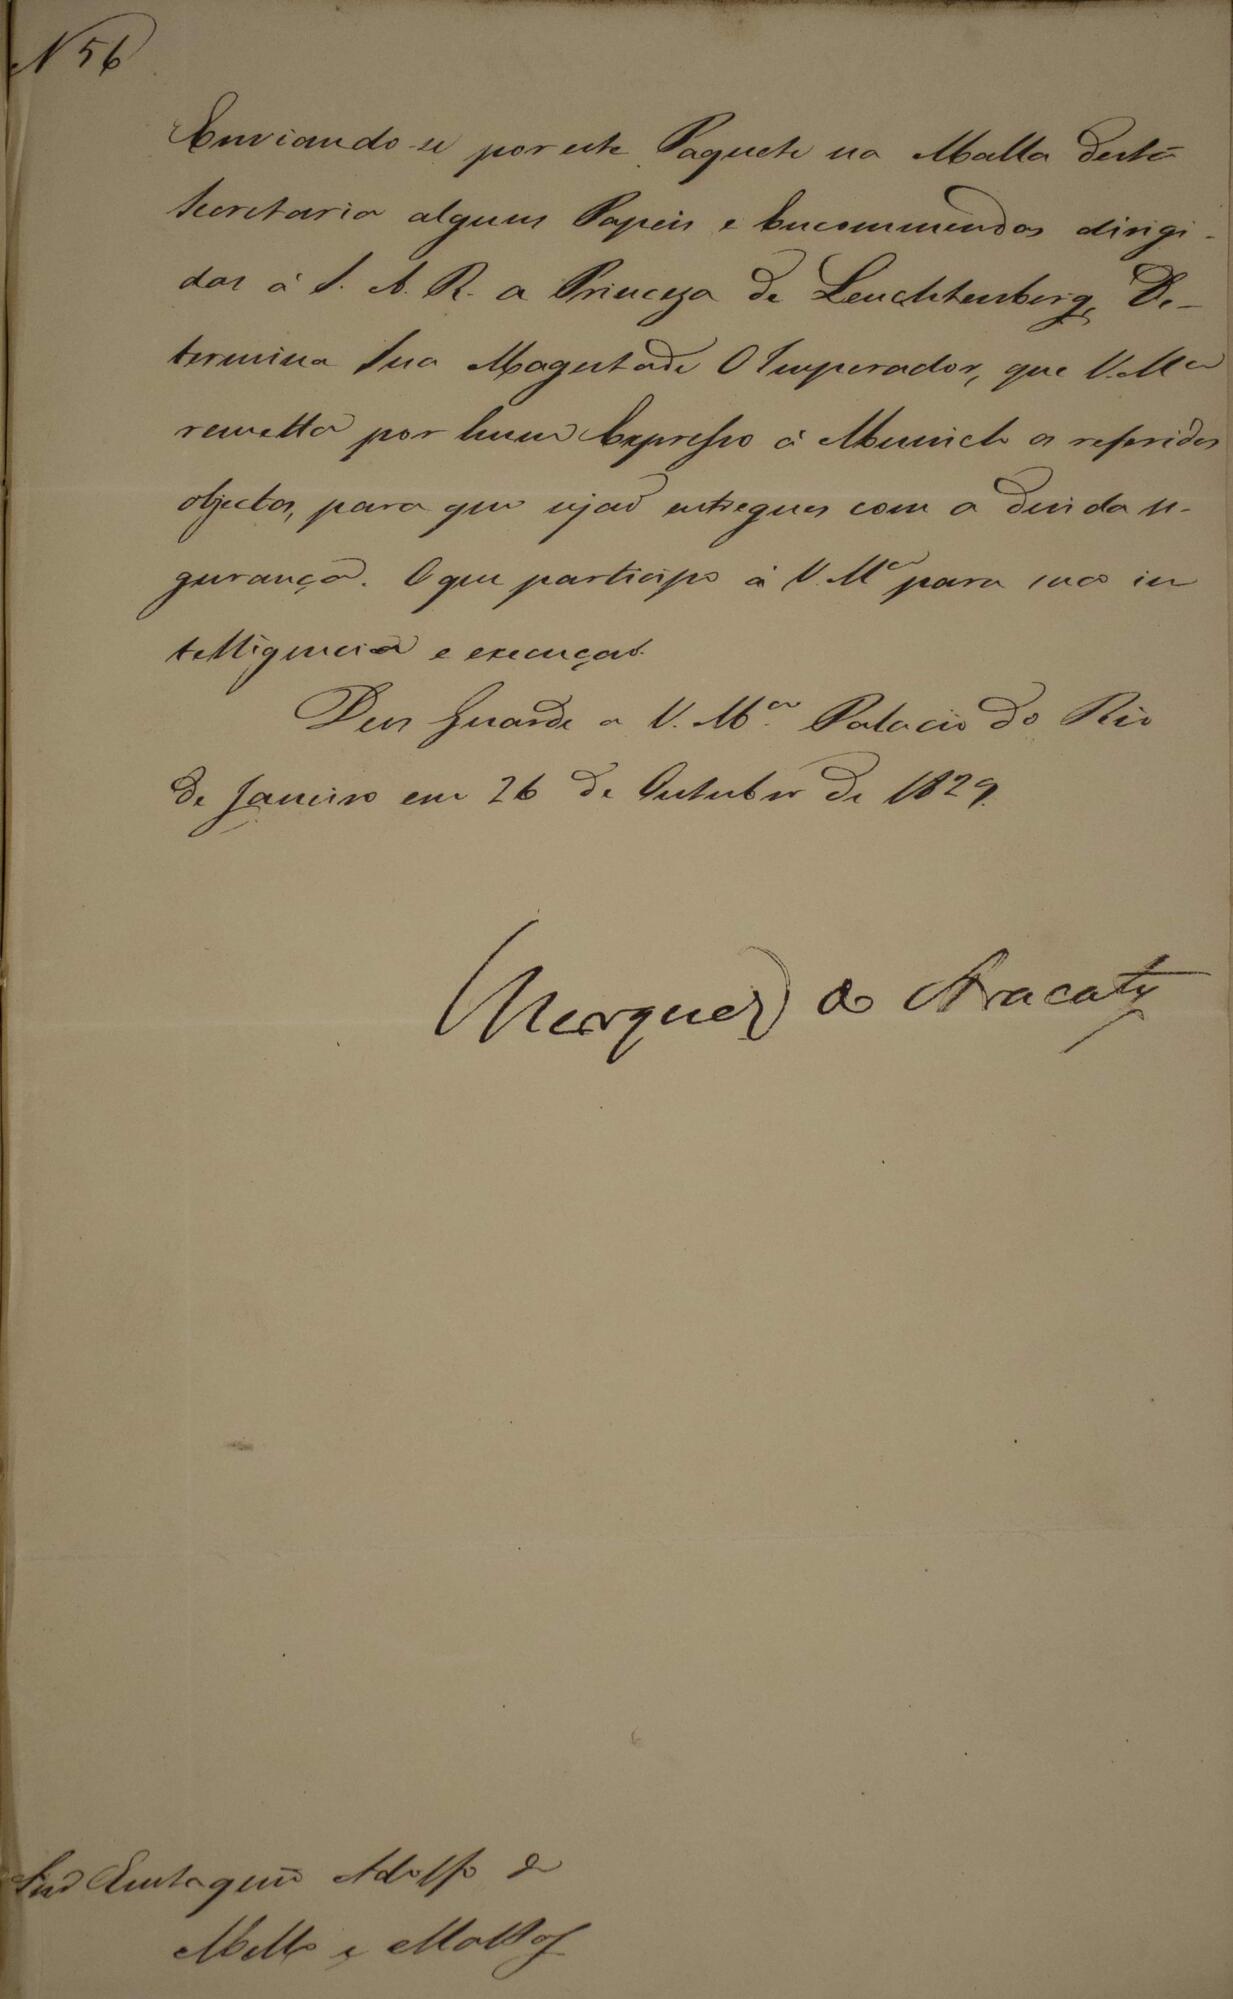 N 56
Enviando-se por este Paquete na Malla desta
Secretaria alguns Papeis e Encommendas dirigi-
das á S. A. R. a Princeza de Leuchtenberg, De-
termina Sua Magestade O Imperador, que V. Mce
remetta por hum Expresso á Munich os referidos
objectos, para que sejaõ entregues com a devida se-
gurança. O que participo á V. Mce para sua in
telligencia e execuçaõ.
Deos Guarde a V. Mce. Palacio do Rio
de Janeiro em 26 de Outubro de 1829.
Marquez de Aracaty
Snr Eustaquio Adolfo de
Mello e Mattos